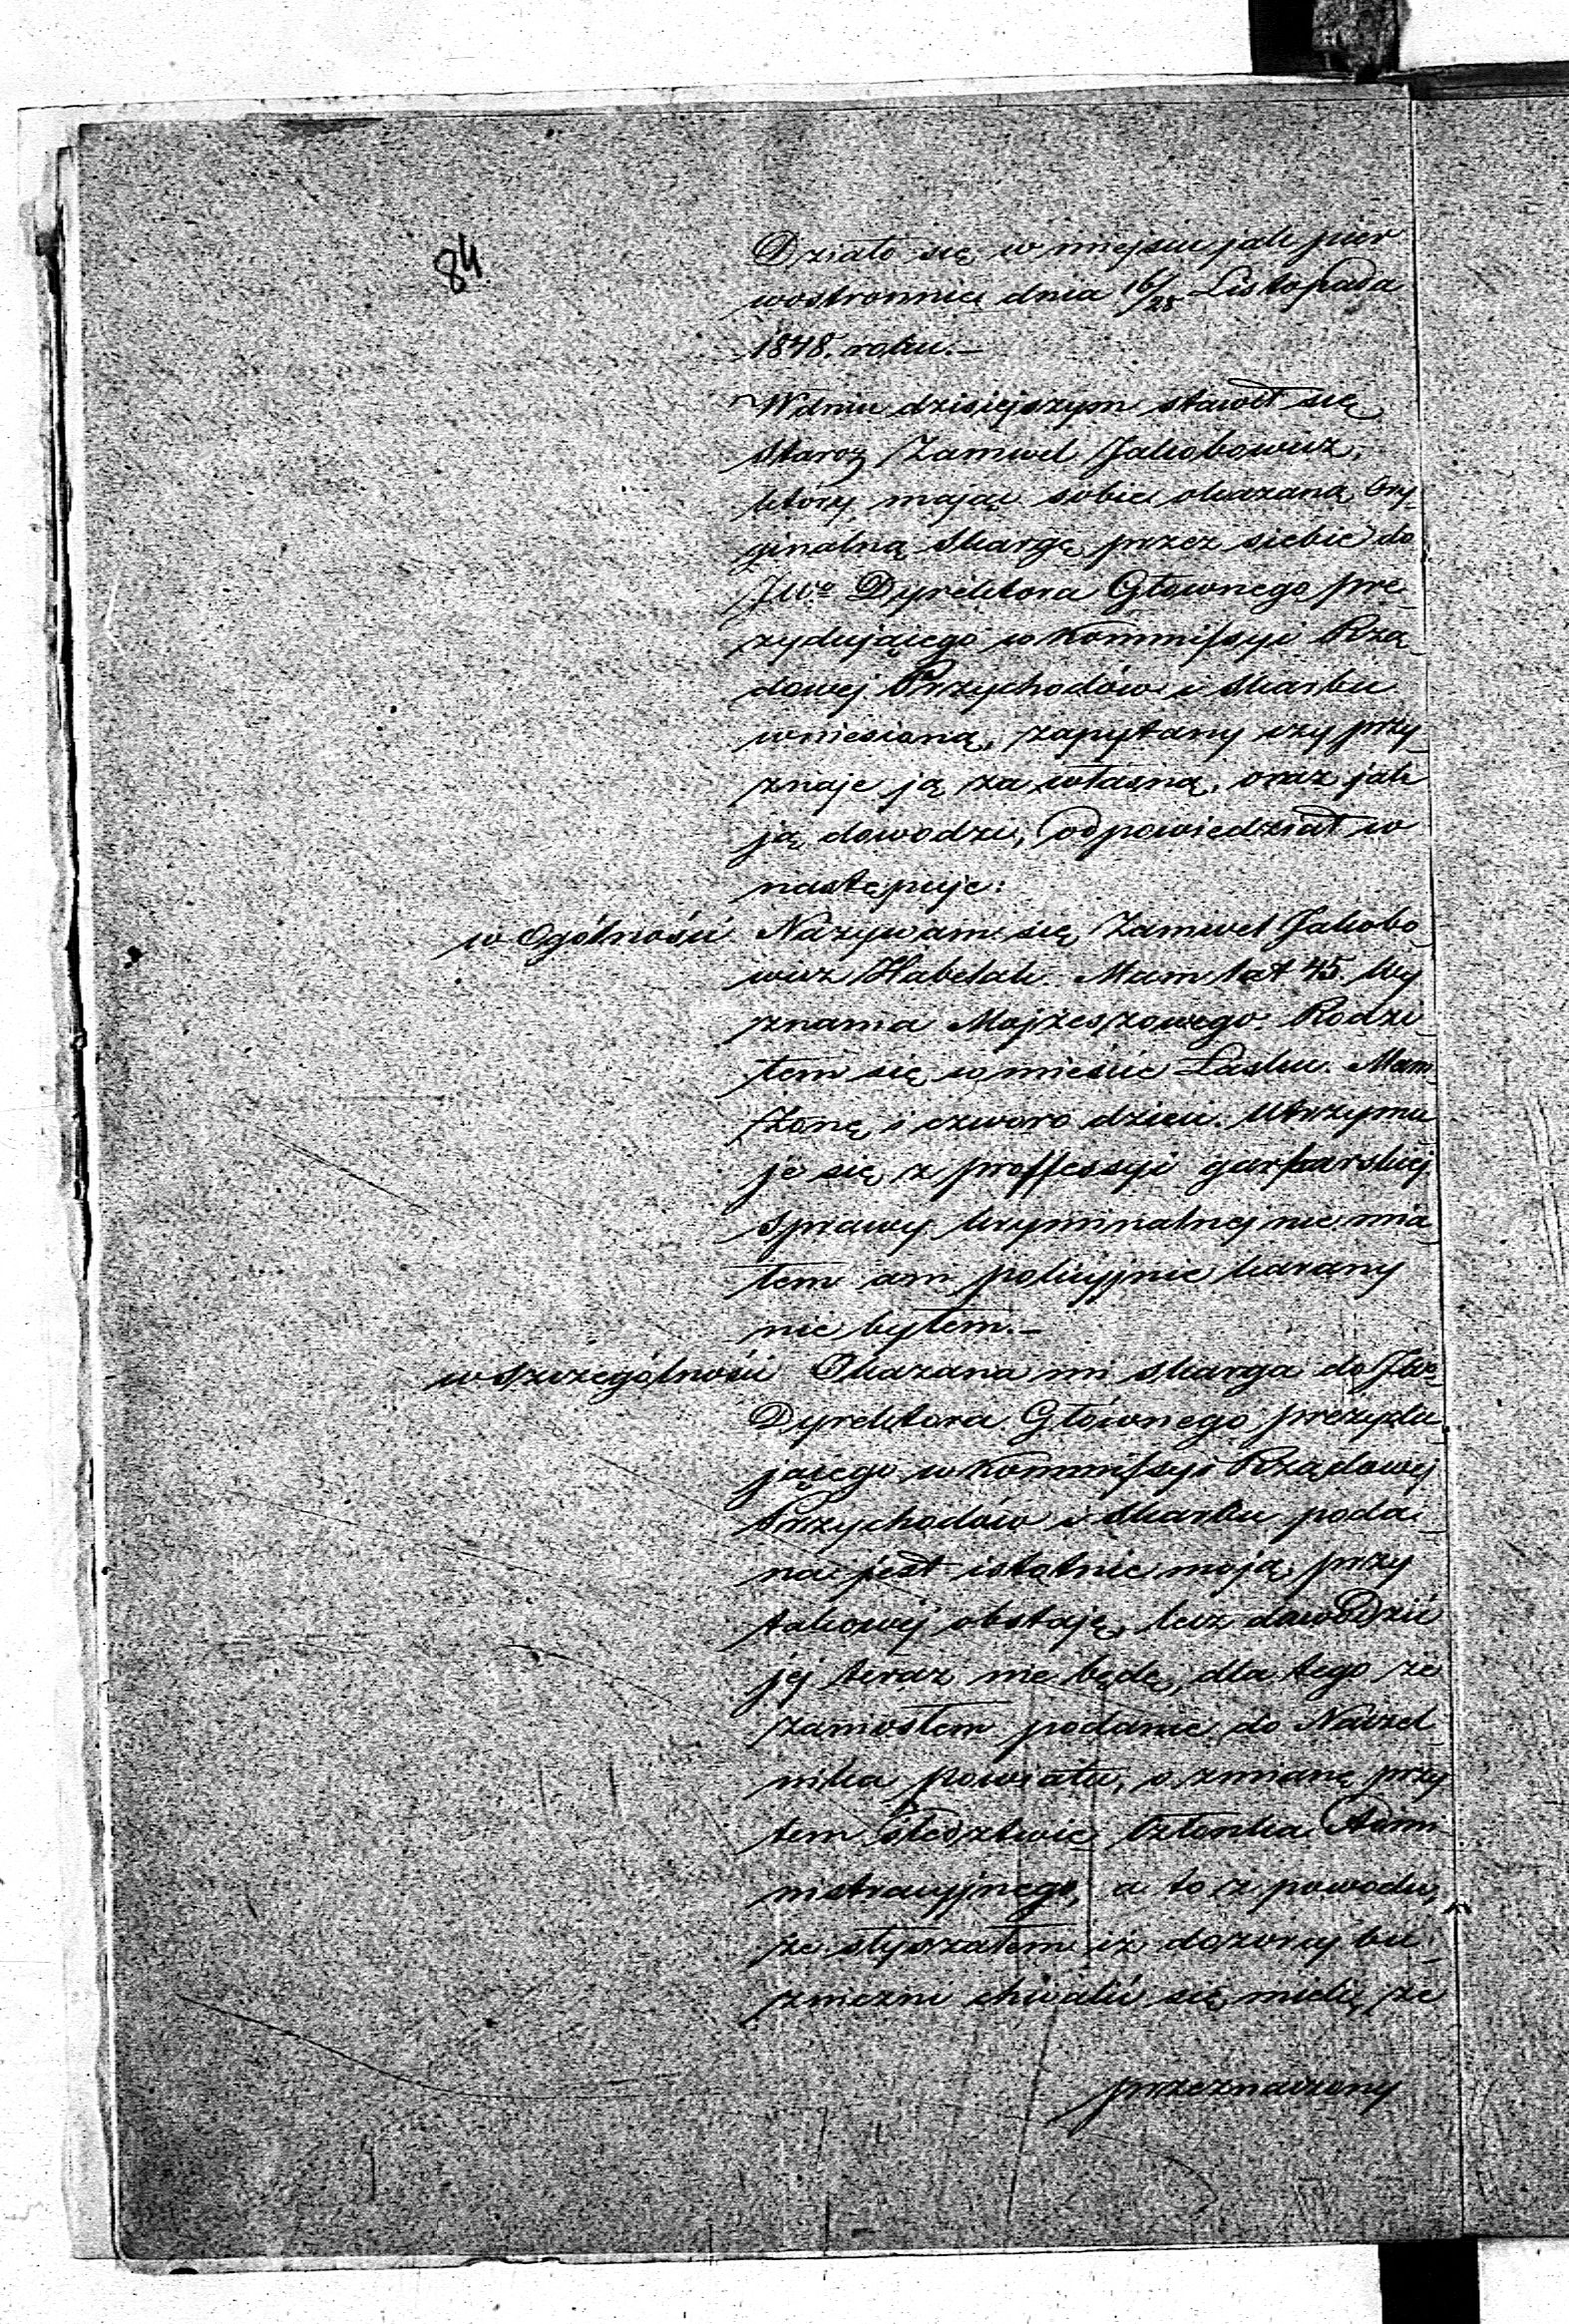 84
Działo się w miejscu jak pier
wostronnie dnia 16/28 Listopada
1848. roku.—
W dniu dzisiejszym stawił się
Staroz Zamwel Jakobowicz,
który mając sobie okazaną Ory
ginalną Skargę przez siebie do
JWo Dyrektora Głownego pre
zydującego w Kommissyi Rzą
dowej Przychodów i Skarbu
wniesioną, zapytany czy przy
znaje ją za własną, oraz jak
ją dowodzi, odpowiedział w
następuje:
w Ogólności Nazywam się Zamwel Jakobo
wicz Habelak. Mam lat 45. Wy
znania Mojżeszowego. Rodzi
łem się w mieście Łasku. Mam
Żonę i czworo dzieci. Utrzymu
je się z proffessyi garbarskiej
Sprawy kryminalnej nie mia
łem ani policyjnie karany
nie byłem.—
w Szczególności Okazana mi skarga do JWo
Dyrektora Głównego prezydu
jącego w Kommissyi Rządowej
Przychodów i Skarbu poda
na jest istotnie moją, przy
takowej obstaję, lecz dowodzić
jej teraz nie będę, dla tego że
zaniosłem podanie do Naczel
nika powiatu, o zmianę przy
tem śledztwie Członka Admi
nistracyjnego, a to z powodu,
że słyszałem iż dozorcy bu
zniczni chwalić się mieli, że
przeznaczony